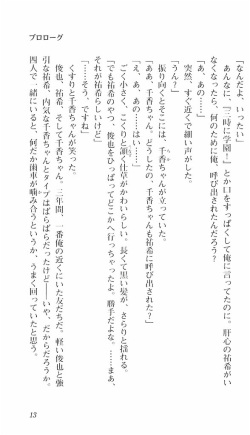 プロローグ
「なんだよ、いったい」
あんなに、「三時に学園!」とか口をすっぱくして俺に言ってたのに。肝心の祐希がい
なくなったら、何のために俺、呼び出されたんだろう?
「あ、あの……」
突然、すぐ近くで細い声がした。
「うん?」
振り向くとそこには、千香ちゃんが立っていた。
「ああ、千香ちゃん。どうしたの、千香ちゃんも祐希に呼び出された?」
「え、あ、あの……はい……」
ごく小さく、こくりと頷く仕草がかわいらしい。長くて黒い髪が、さらりと揺れる。
「でも祐希のやつ、俊也をひっぱってどこかへ行っちゃったよ。勝手だよな。……まあ、
それが祐希らしいけど」
「……そう、ですね」
くすりと千香ちゃんが笑った。
俊也、祐希、そして千香ちゃん。三年間、一番俺の近くにいた友だちだ。軽い俊也と強
引な祐希、内気な千香ちゃんとタイプはばらばらだったけど――いや、だからだろうか。
四人で一緒にいると、何だか歯車が噛み合うというか、うまく回っていたと思う。
13